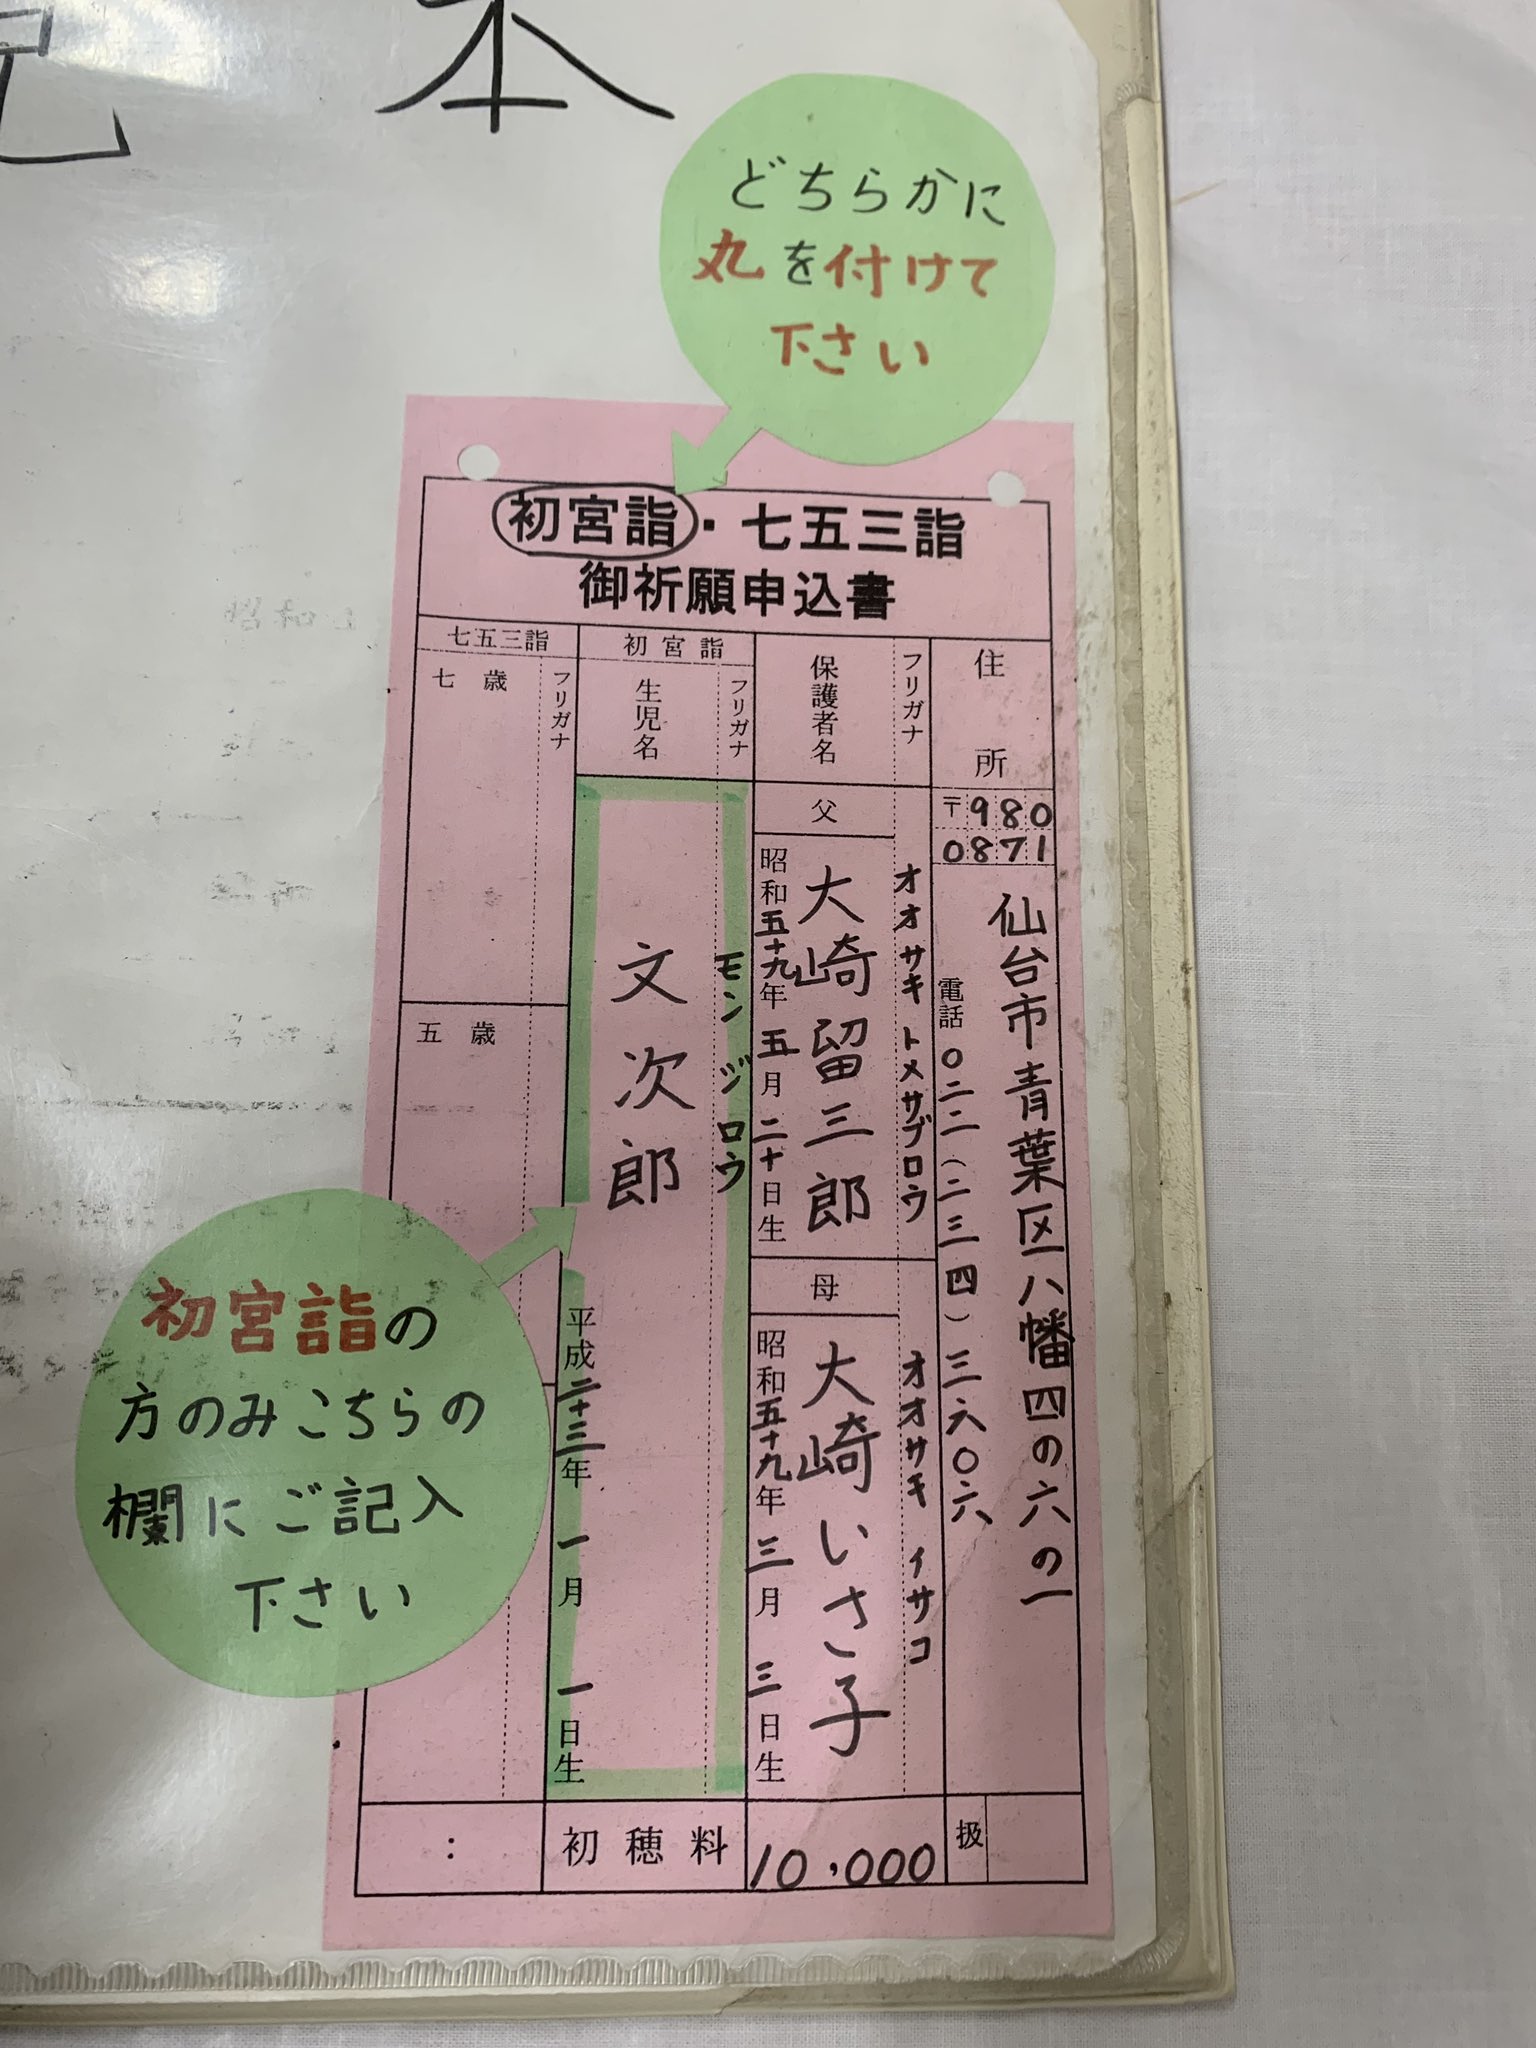 見本
どちらかに
丸を付けて
下さい
初宮詣・七五三詣
御祈願申込書
住所
〒980
0871
仙台市青葉区八幡四の六の一
電話〇二二(二三四)三六〇六
フリガナ
保護者名
父
オオサキトメサブロウ
大崎留三郎
昭和五十九年五月二十日生
母
オオサキイサコ
大崎いさ子
昭和五十九年三月三日生
初宮詣
フリガナ
生児名
モンジロウ
文次郎
平成二十三年一月一日生
七五三詣
フリガナ
七歳
五歳
初宮詣の
方のみこちらの
欄にご記入
下さい
:
初穂料
10,000
扱